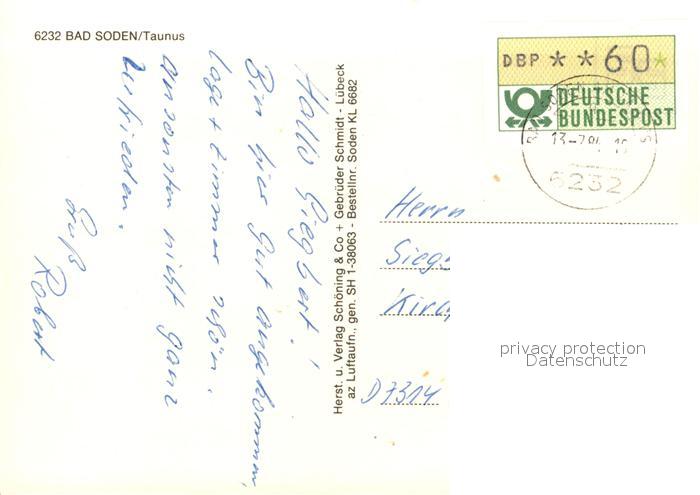 6232 BAD SODEN/Taunus
Hallo Siegbert!
Bin hier gut angekommen,
Lage + Zimmer schön.
ansonsten nicht ganz
zufrieden.
Gruß
Robert
Herst. u. Verlag Schöning & Co + Gebrüder Schmidt - Lübeck
az Luftaufn., gen. SH 1-38063 - Bestellnr. Soden KL 6682
DBP ** 60*
DEUTSCHE
BUNDESPOST
6232
Herrn
D7314
privacy protection
Datenschutz